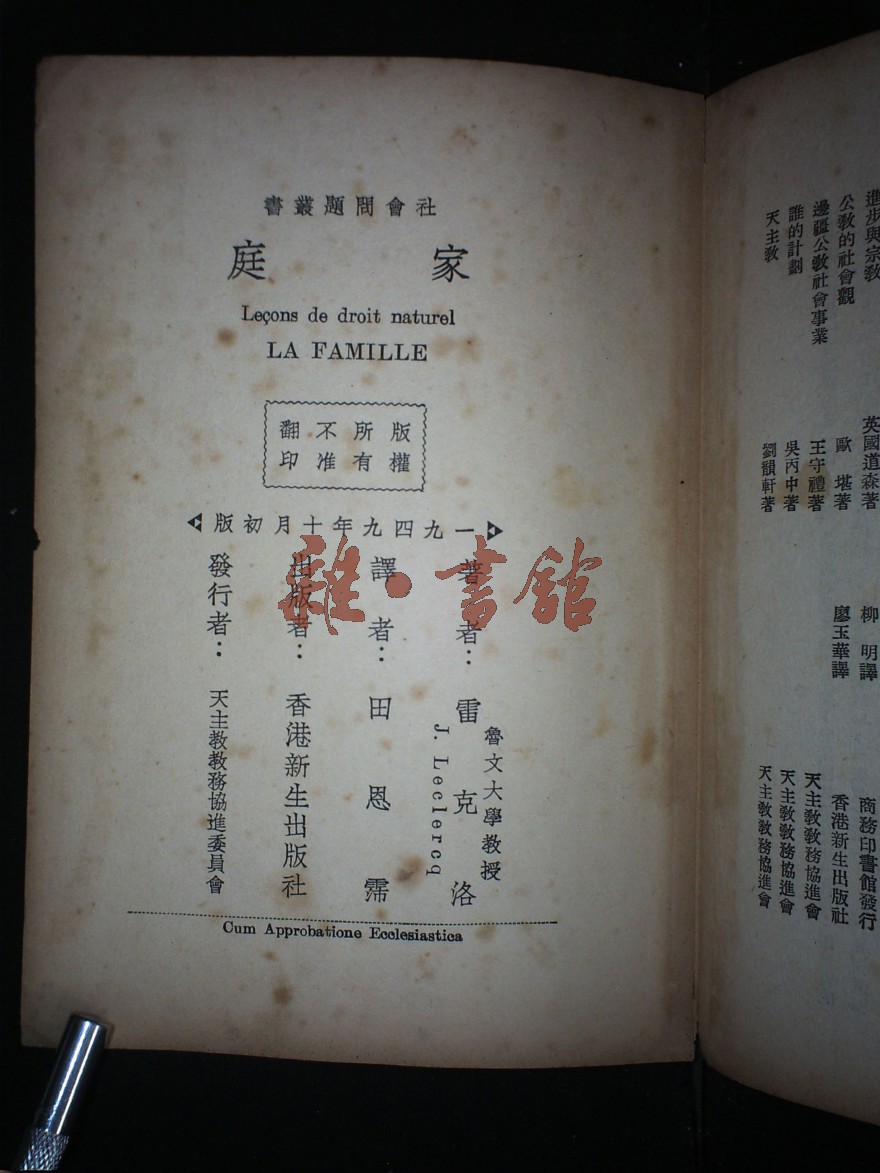 社會問題叢書
家庭
Leçons de droit naturel
LA FAMILLE
版權
所有
不准
翻印
一九四九年十月初版
著者：魯文大學教授
雷克洛
J. Leclercq
譯者：田恩霈
出版者：香港新生出版社
發行者：天主教教務協進委員會
Cum Approbatione Ecclesiastica
雜·書館
進步與宗教 英國道森著 柳明譯 商務印書館發行
公教的社會觀 歐堪著 廖玉華譯 香港新生出版社
邊疆公教社會事業 王守禮著 天主教教務協進會
誰的計劃 吳丙中著 天主教教務協進會
天主教 劉韻軒著 天主教教務協進會